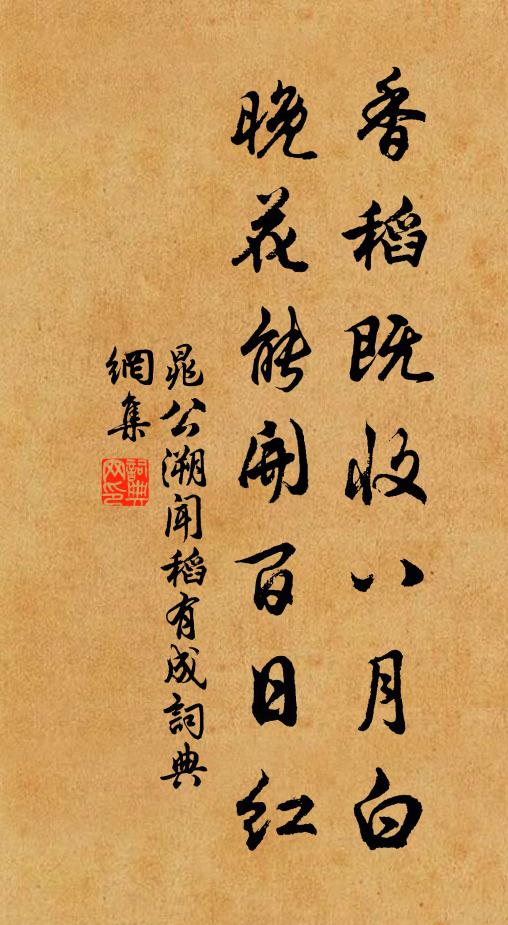 香稻既收八月白
晚花能開百日紅
晁公溯聞稻有成詞典
網集
詞典
网印